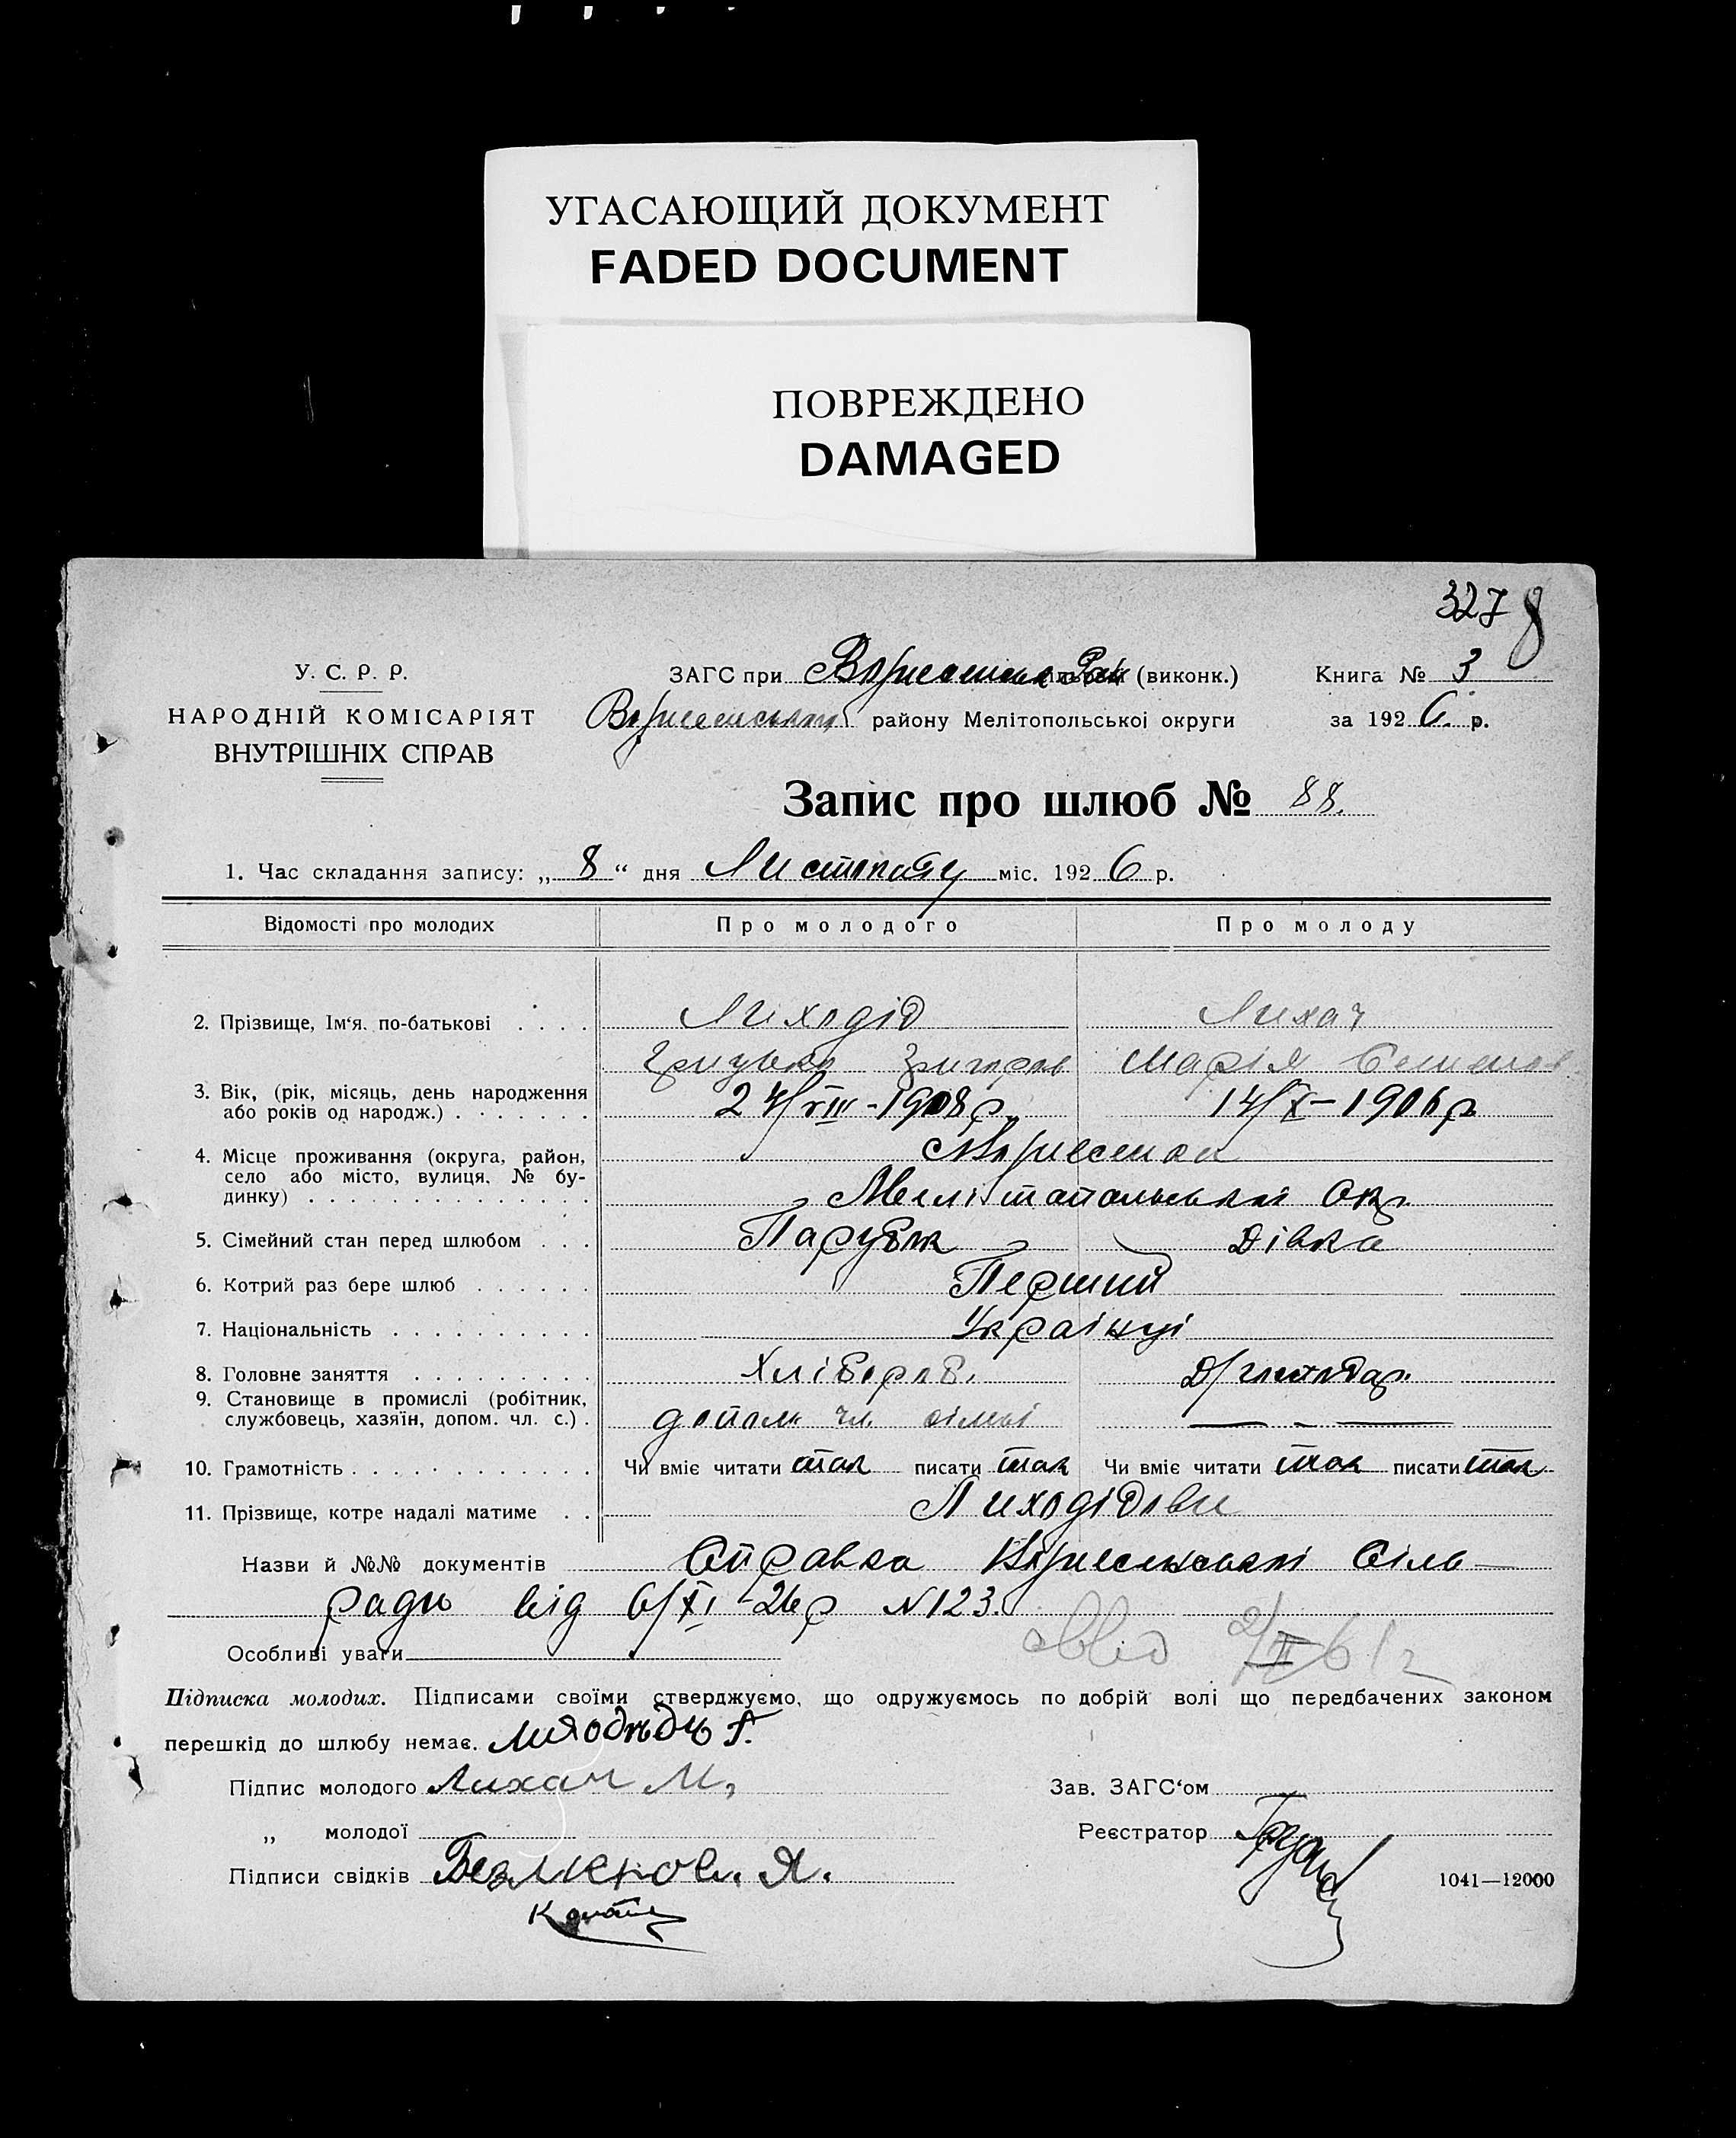 УГАСАЮЩИЙ ДОКУМЕНТ
FADED DOCUMENT
ПОВРЕЖДЕНО
DAMAGED
327 8
У. С. Р. Р.
НАРОДНІЙ КОМІСАРІЯТ
ВНУТРІШНІХ СПРАВ
ЗАГС при (виконк.)
району Мелітопольської округи
Книга № 3
за 1926 р.
Запис про шлюб № 88.
1. Час складання запису: „ 8 “ дня Листопаду міс. 1926 р.
Відомості про молодих Про молодого Про молоду
2. Прізвище, Ім‘я, по-батькові . . . . Лиходід Лихач
Грицько Григоров Марія Семенов
3. Вік, (рік, місяць, день народження
або років од народж.) . . . . . . . 24/VIII-1908р. 14/X-1906р
4. Місце проживання (округа, район,
село або місто, вулиця, № бу-
динку) . . . . . . . . . . . . . . Мелітопольської Окр.
5. Сімейний стан перед шлюбом . . . Парубок Дівка
6. Котрий раз бере шлюб . . . . . . Перший
7. Національність . . . . . . . . . . Українці
8. Головне заняття . . . . . . . . . Хлібороб. Д/господар.
9. Становище в промислі (робітник,
службовець, хазяїн, допом. чл. с.) . допом чл. сімьї
10. Грамотність . . . . . . . . . . . . Чи вміє читати так писати так Чи вміє читати так писати так
11. Прізвище, котре надалі матиме . . Лиходідови
Назви й №№ документів Справка Сіль—
ради від 6/XI-26р N123.
2/II 61г
Особливі уваги
Підписка молодих. Підписами своїми стверджуємо, що одружуємось по добрій волі що передбачених законом
перешкід до шлюбу немає.
Підпис молодого Лихач М,
„ молодої
Підписи свідків
Зав. ЗАГС‘ом
Реєстратор
1041—12000